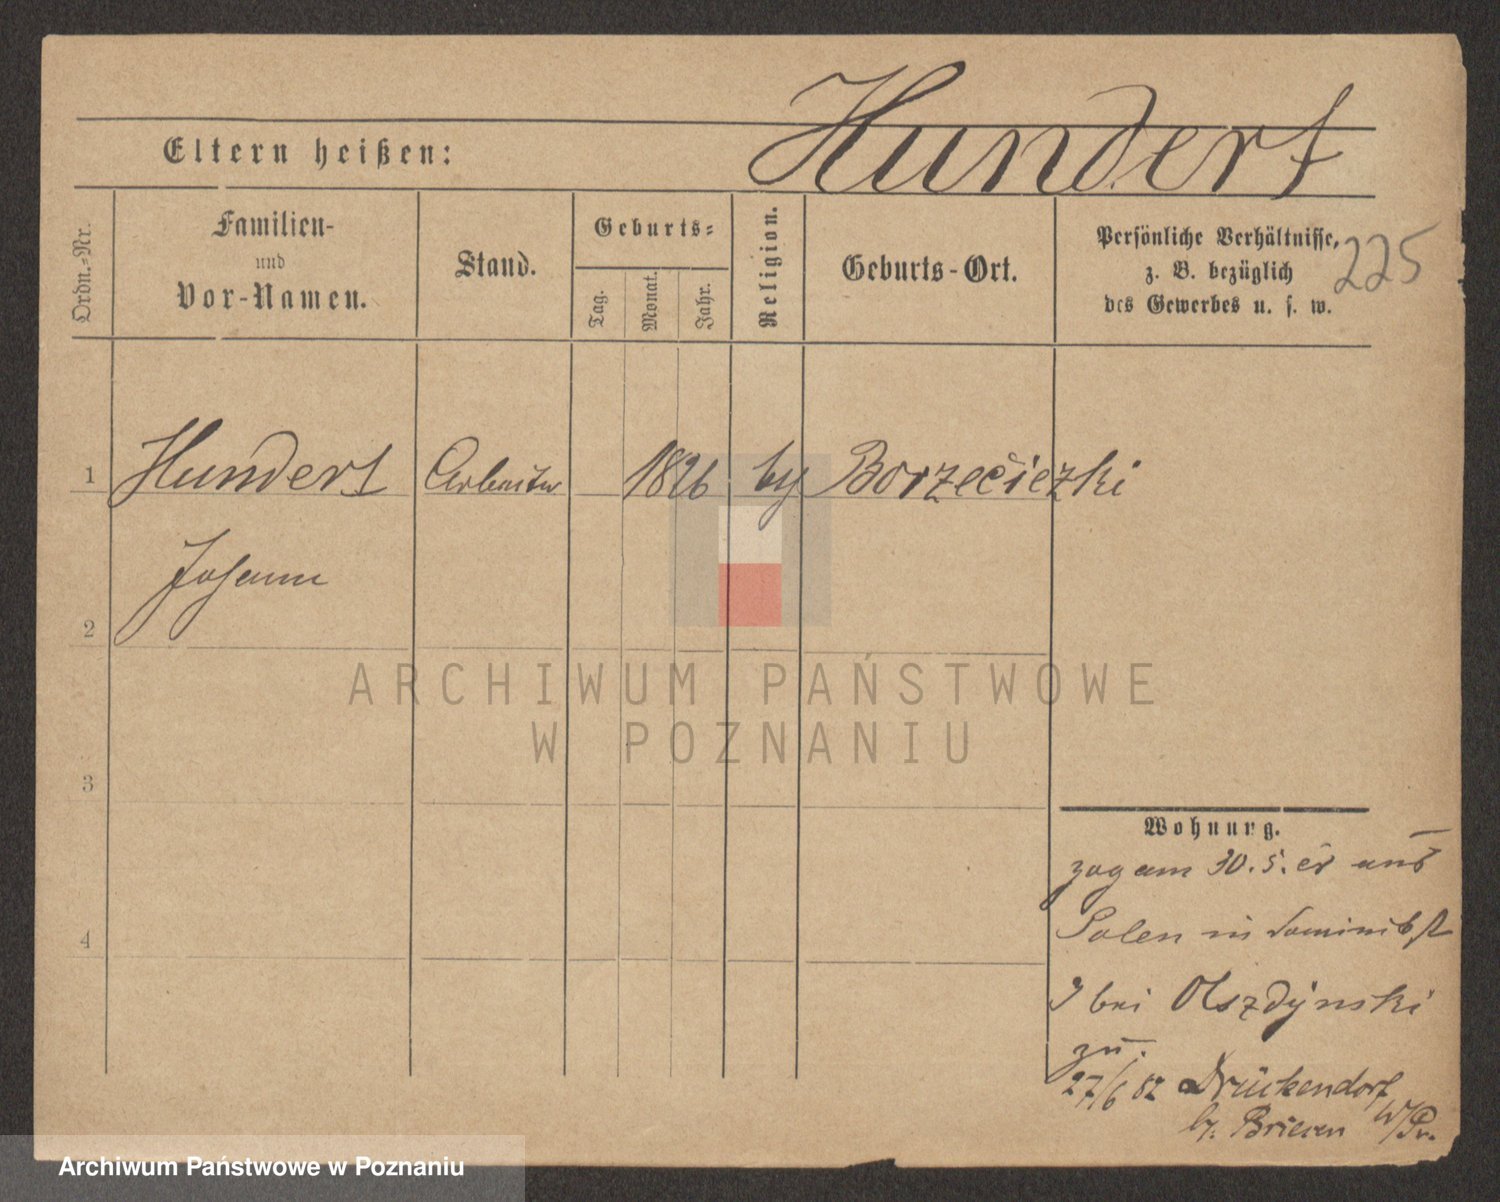 Hundert
Eltern heißen:
Ordn.-Nr.
Familien-
und
Vor-Namen.
Stand.
Geburts-
Tag.
Monat.
Jahr.
Religion.
Geburts-Ort.
Persönliche Verhältnisse,
z. B. bezüglich
des Gewerbes u. s. w.
225
1 Hundert Arbeiter 1826 Borzeciezki
Johann
2
3
4
ARCHIWUM PAŃSTWOWE
W POZNANIU
Wohnung.
zog am 30. 5. cr aus
Polen in Dominikst
bei Olszdynski
zu.
27/6 82 Drückendorf
b. Briesen W/Pr.
Archiwum Państwowe w Poznaniu